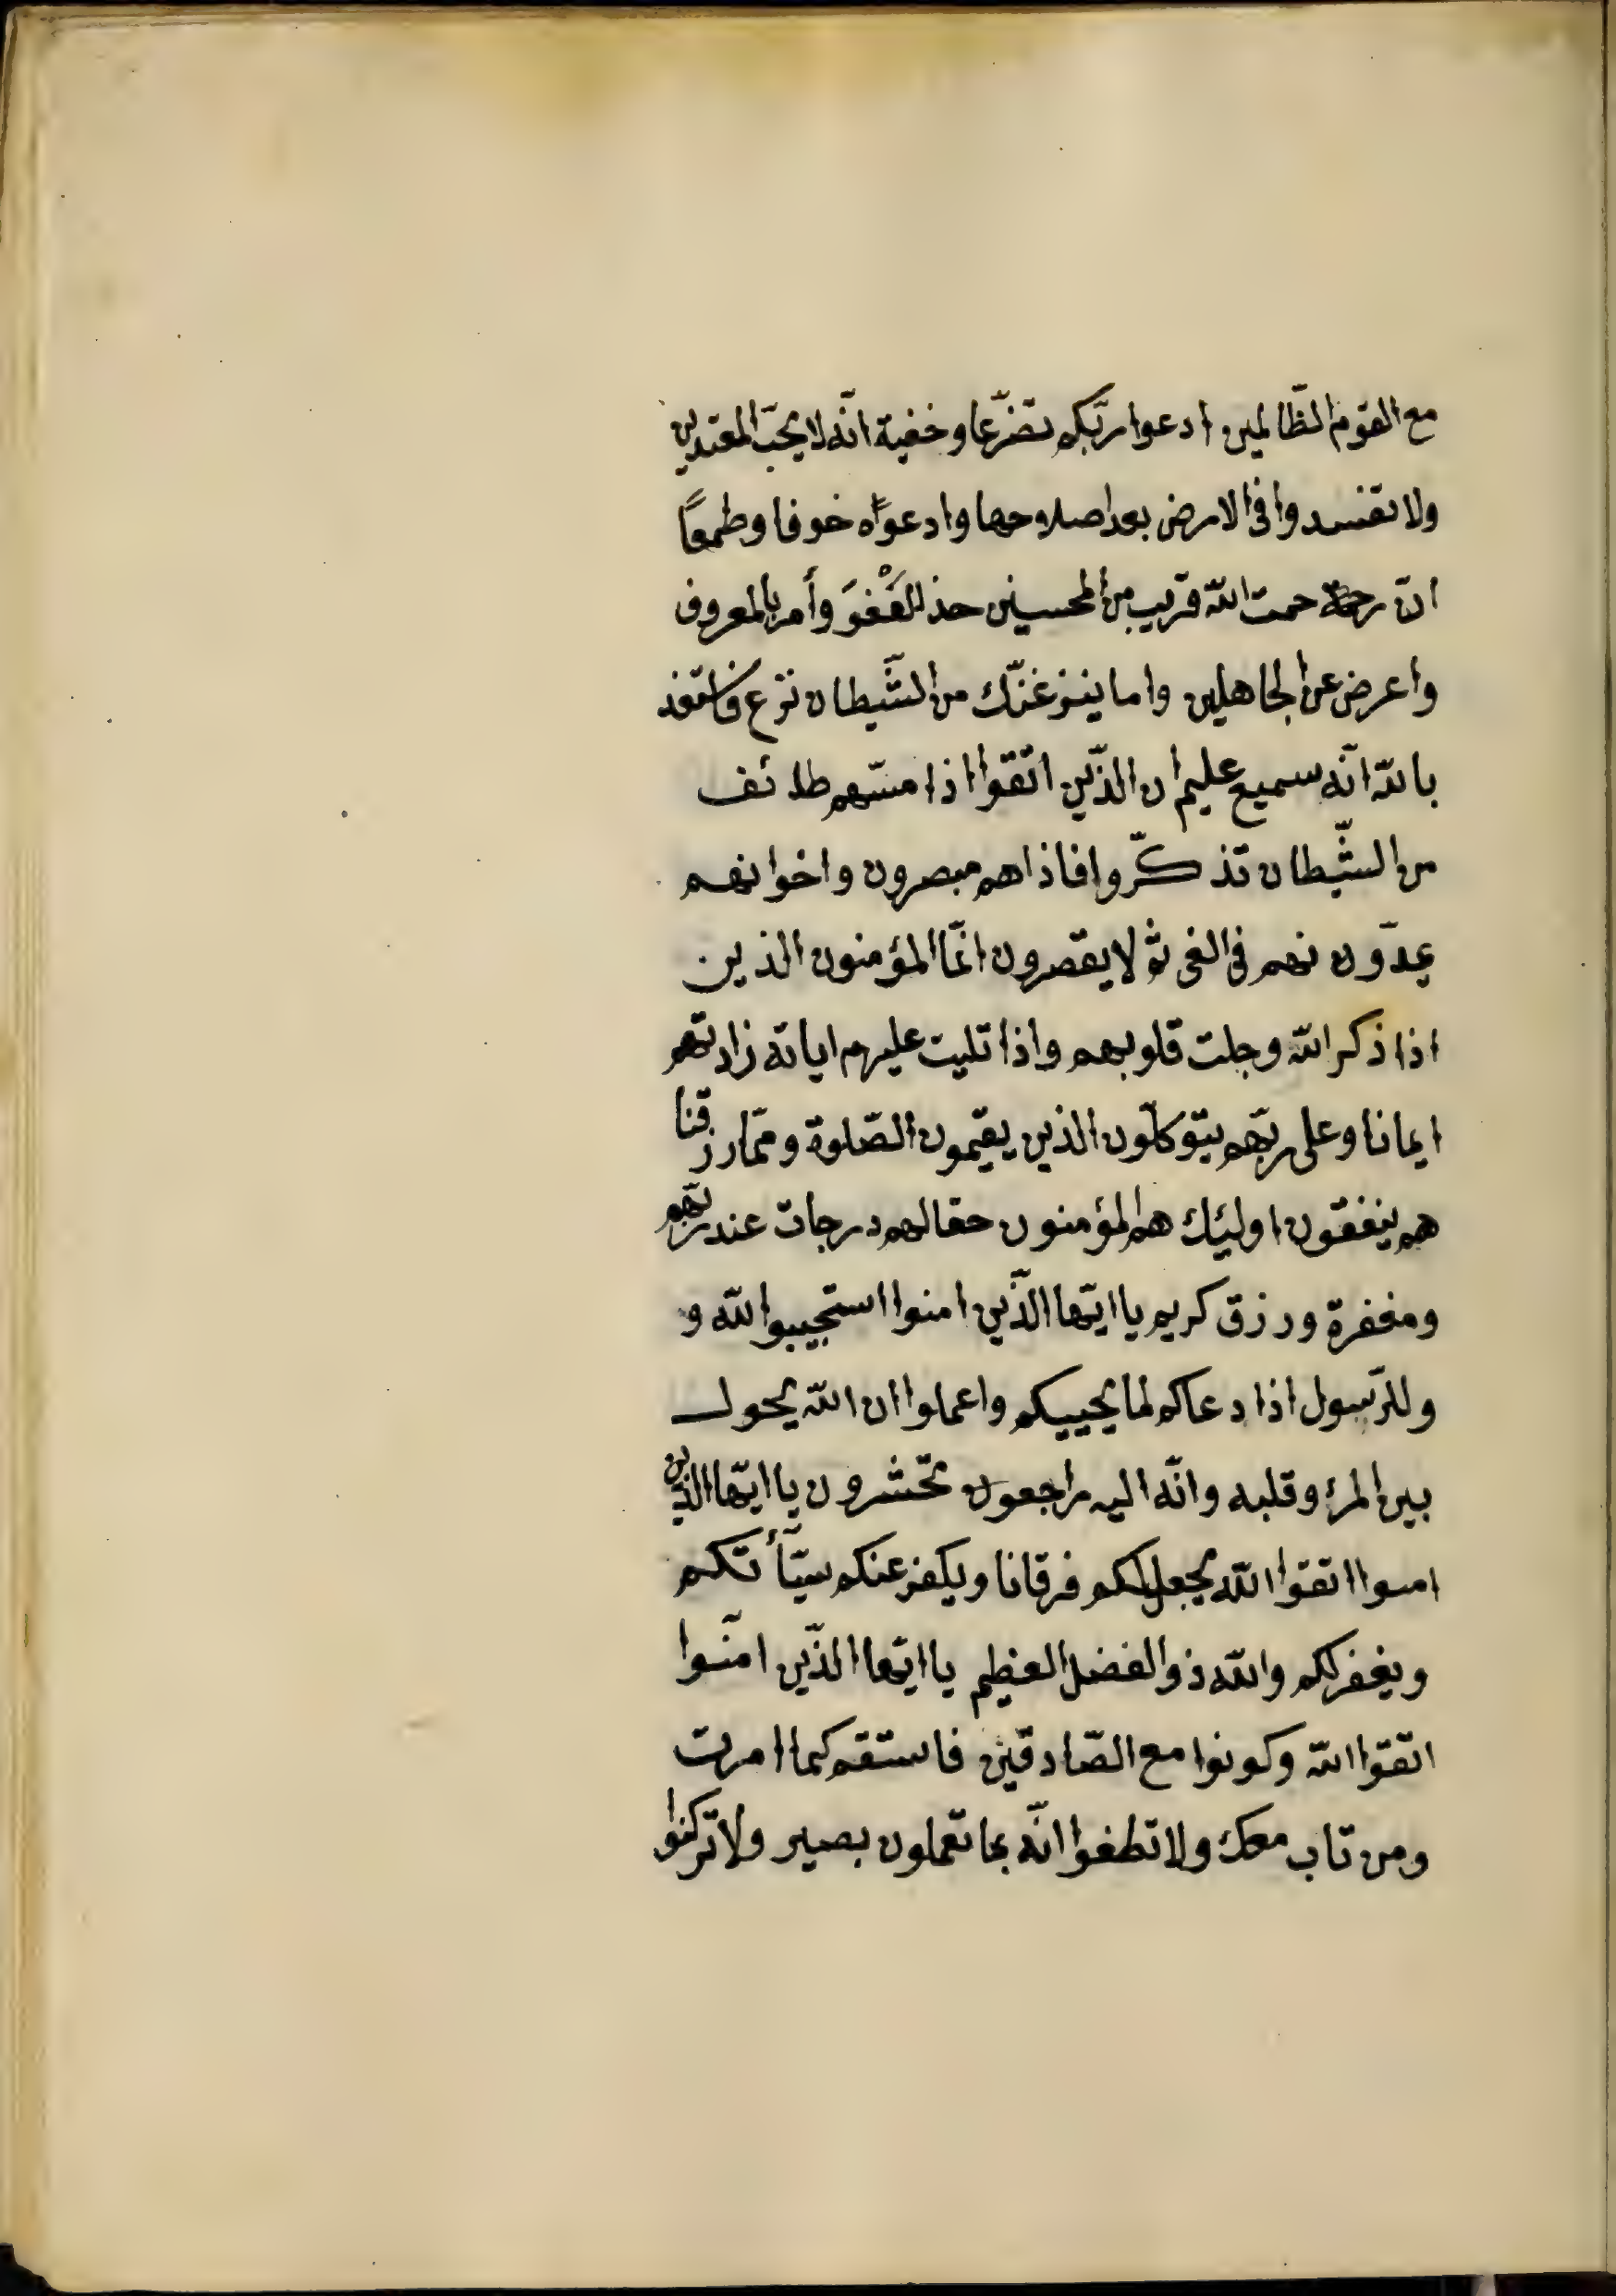 مع القوم الظّالمين ادعوا ربّكم تضرّعا وخفية انّه لا يحبّ المعتدين
ولا تفسدوا فى الارض بعد اصلاحها وادعوه خوفا وطمعًا
انّ رحمة حمت الله قريب من المحسنين خذ الْعَفْوَ وأمر بالمعروف
واعرض عن الجاهلين واما ينزغنّك من الشّيطان نزغ فاستعذ
بالله انّه سميع عليم ان الذّين اتّقوا اذا مسّهم طائف
من الشّيطان تذكّروا فاذاهم مبصرون واخوانهم
يمدّون نهم فى الغى ثم لا يقصرون انّما المؤمنون الذين
اذا ذكر الله وجلت قلوبهم واذا تليت عليهم اياته زادتهم
ايمانا وعلى ربّهم يتوكلّون الذين يقيمون الصّلوة وممّا رزقنا
هم ينفقون اولئك هم المؤمنون حقا لهم درجات عند ربّهم
ومغفرة ورزق كريم يا ايّها الذّين امنوا استجيبوا لله و
وللرّسول اذا دعاكم لما يحييكم واعملوا ان الله يحول
بين المرء وقلبه وانّه اليه راجعون تحشرون يا ايّها الذين
امنوا اتقوا الله يجعل لكم فرقانا ويكفر عنكم سيّأتكم
ويغفر لكم والله ذو الفضل العظيم يا ايّها الذّين امنّوا
اتقوا الله وكونوا مع الصّادقين فاستقم كما امرت
ومن تاب معك ولا تطغوا انّه بما تعملون بصير ولا تركنوا